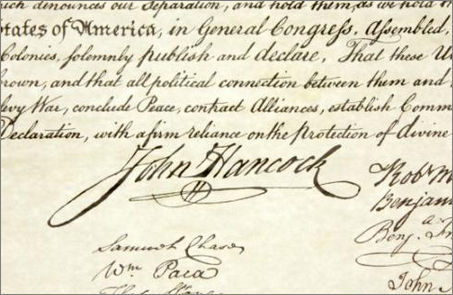 such denounces our Separation, and hold them, as we hold
States of America, in General Congress, Assembled,
Colonies, solemnly publish and declare, That these
and that all political connection between them and
levy War, conclude Peace, contract Alliances, establish
Declaration, with a firm reliance on the Protection of divine
John Hancock
Samuel Chase
Wm Paca
Benj.
John